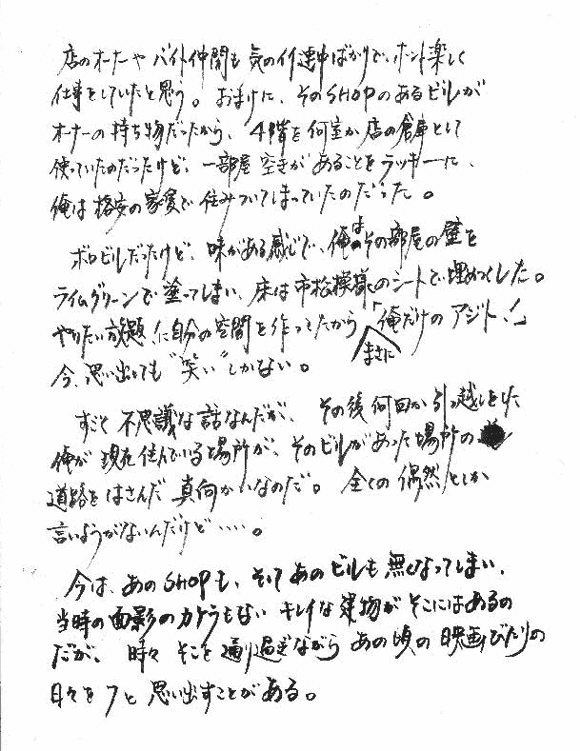 店のオーナーや バイト仲間も 気のイイ連中ばかりで、ホント楽しく
仕事をしていたと思う。おまけに、そのSHOPのあるビルが
オーナーの持ち物だったから、4階を何室か店の倉庫として
使っていたのだったけど、一部屋空きがあることをラッキーに、
俺は格安の家賃で住みついてしまっていたのだった。
ボロビルだったけど、味がある感じで、俺はその部屋の壁を
ライムグリーンで塗ってしまい、床は市松模様のシートで埋めつくした。
やりたい放題に自分の空間を作ってたから まさに「俺だけのアジト!」
今、思い出しても“笑い”しかない。
すごく不思議な話なんだが、その後何回か引っ越しをした
俺が現在住んでいる場所が、そのビルがあった場所の
道路をはさんだ真向かいなのだ。全くの偶然としか
言いようがないんだけど・・・・。
今は、あのSHOPも、そしてあのビルも無くなってしまい、
当時の面影のカケラもない キレイな建物がそこにはあるの
だが、時々そこを通り過ぎながら あの頃の映画びたりの
日々をフと思い出すことがある。